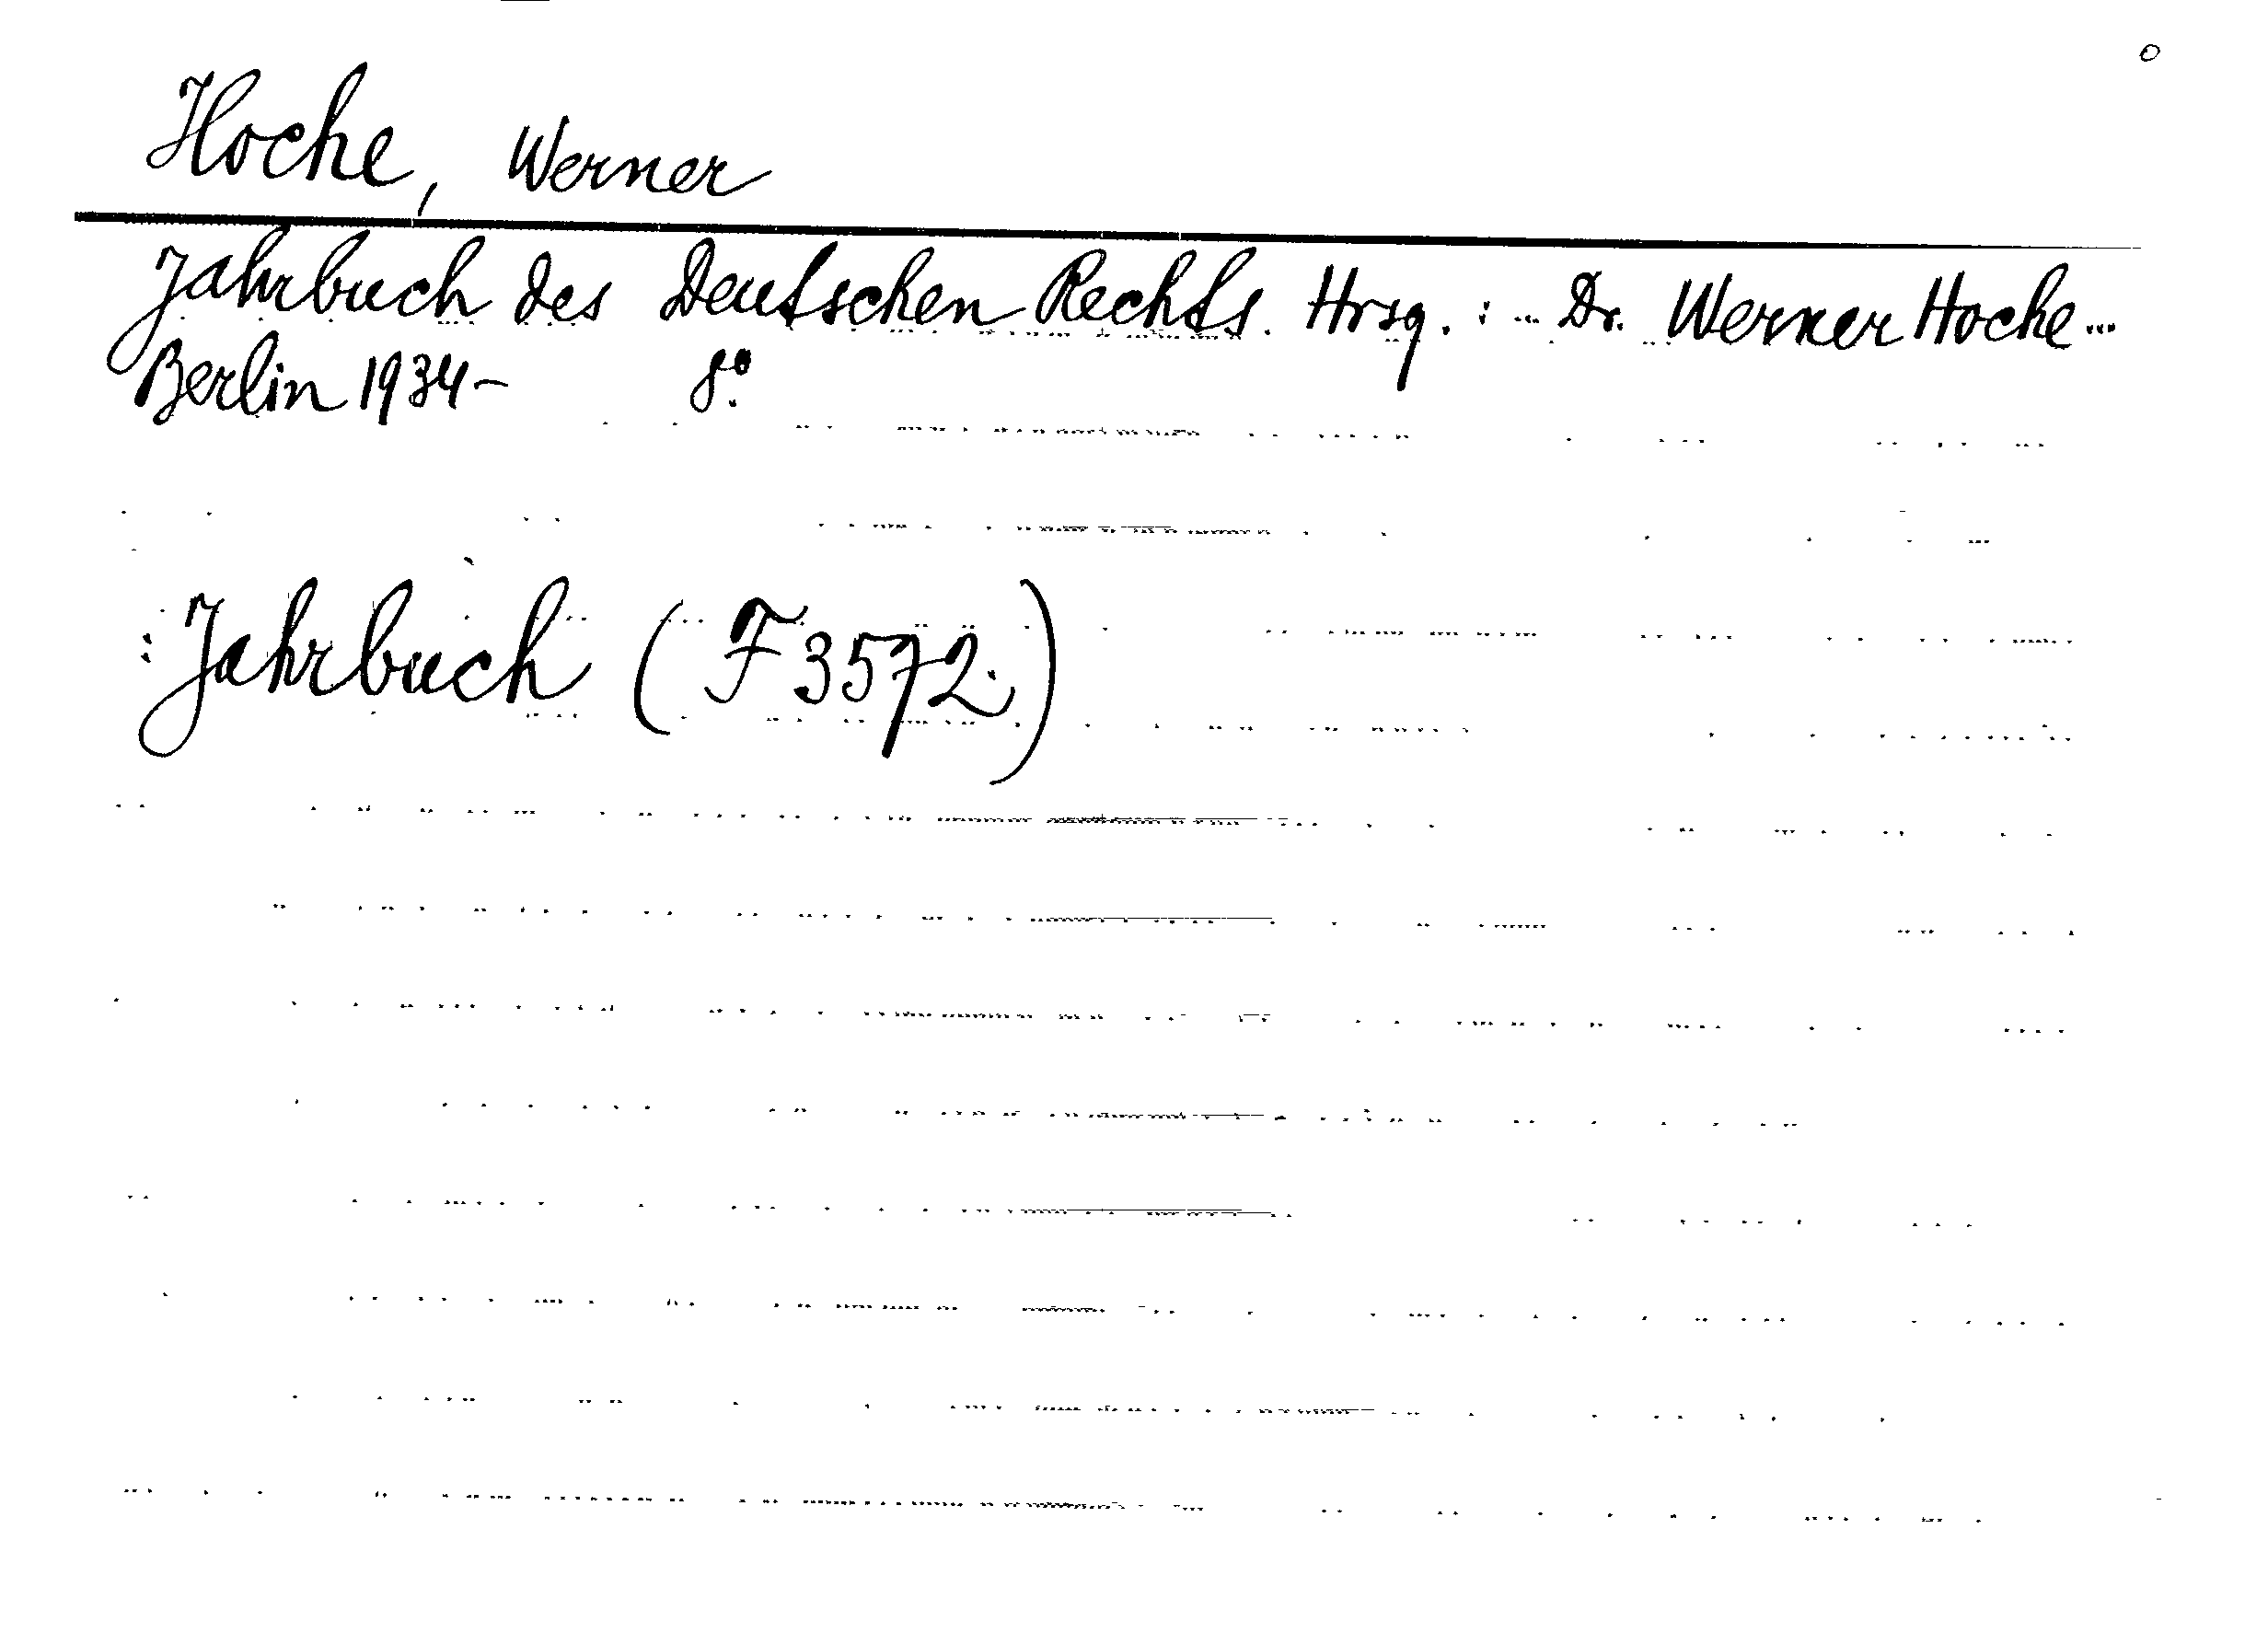 Hoche, Werner
Jahrbuch des Deutschen Rechts. Hrsg.: ... Dr. Werner Hoche ...
Berlin 1934- 8°.
: Jahrbuch (F 3572.)